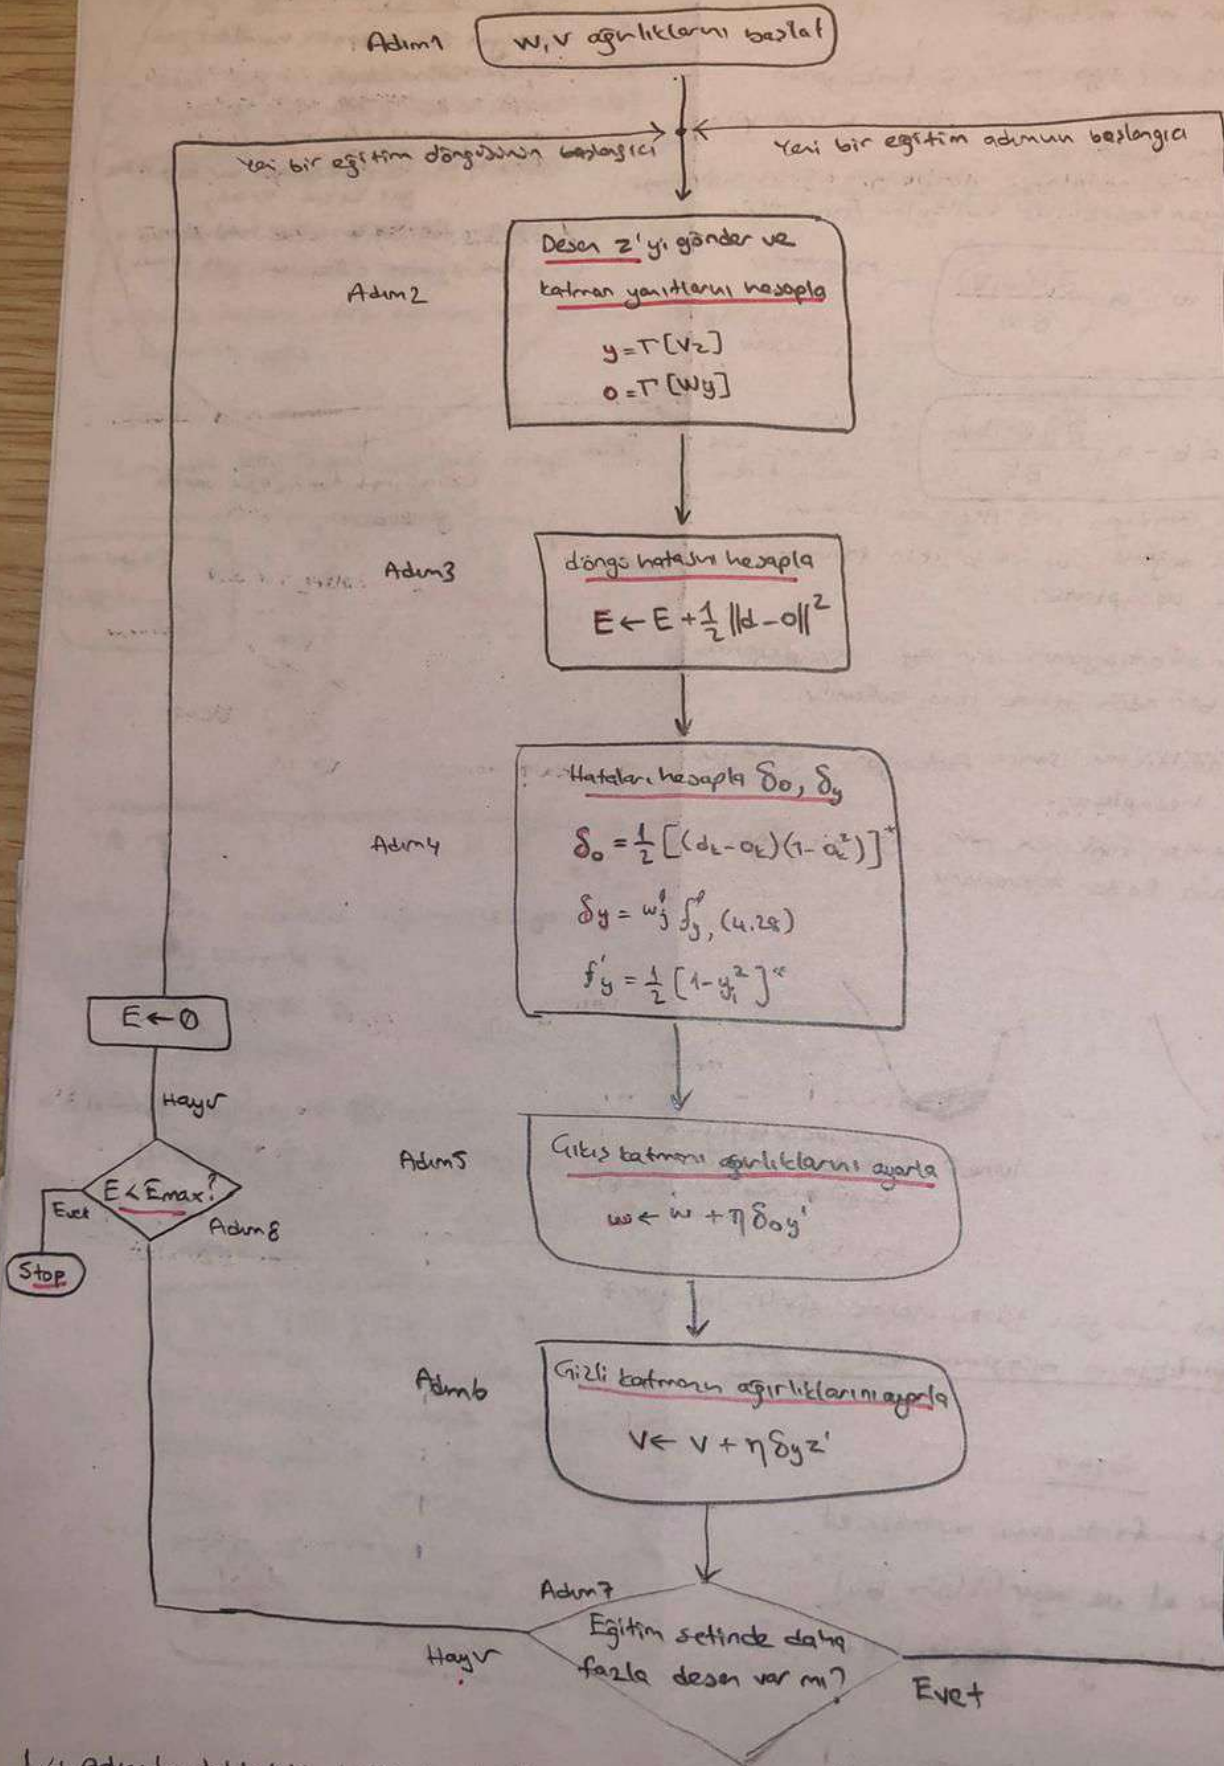 Adım1
W,V ağırlıklarını başlat
Yeni bir eğitim döngüsünün başlangıcı
Yeni bir eğitim adımının başlangıcı
Adım2
Desen z'yi gönder ve
katman yanıtlarını hesapla
y=Γ[Vz]
o=Γ[Wy]
Adım3
döngü hatasını hesapla
E←E+½||d-o||²
Adım4
Hataları hesapla δo, δy
δo = ½[(dk-ok)(1-ok²)]*
δy = w'j f'y, (4.28)
f'y = ½[1-yi²]*
E←0
Hayır
Adım5
Çıkış katmanı ağırlıklarını ayarla
w ← w + ηδoy'
E<Emax?
Evet
Adım8
Stop
Adım6
Gizli katmanın ağırlıklarını ayarla
V← V + ηδyz'
Adım7
Eğitim setinde daha
fazla desen var mı?
Hayır
Evet